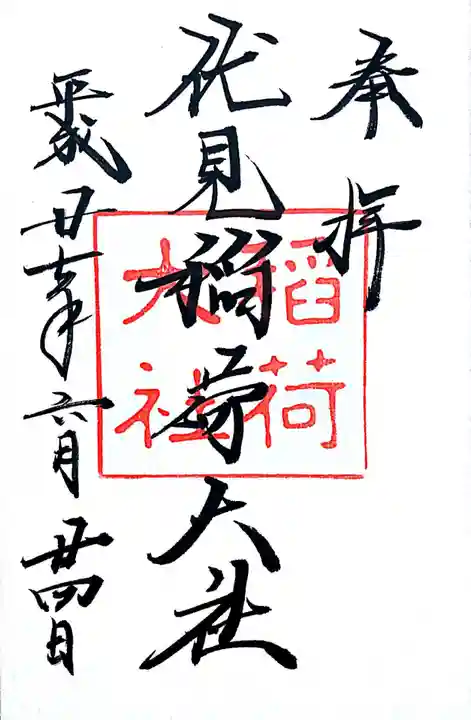 奉拝
伏見稲荷大社
稲荷
大社
平成廿七年六月廿四日